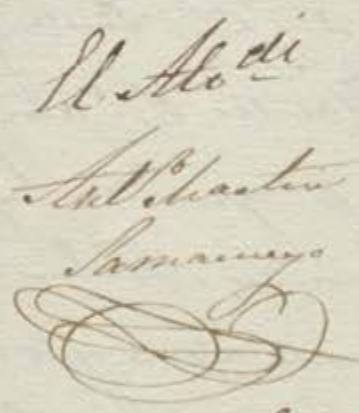 El Alc di
Antº Martin
Samaniego